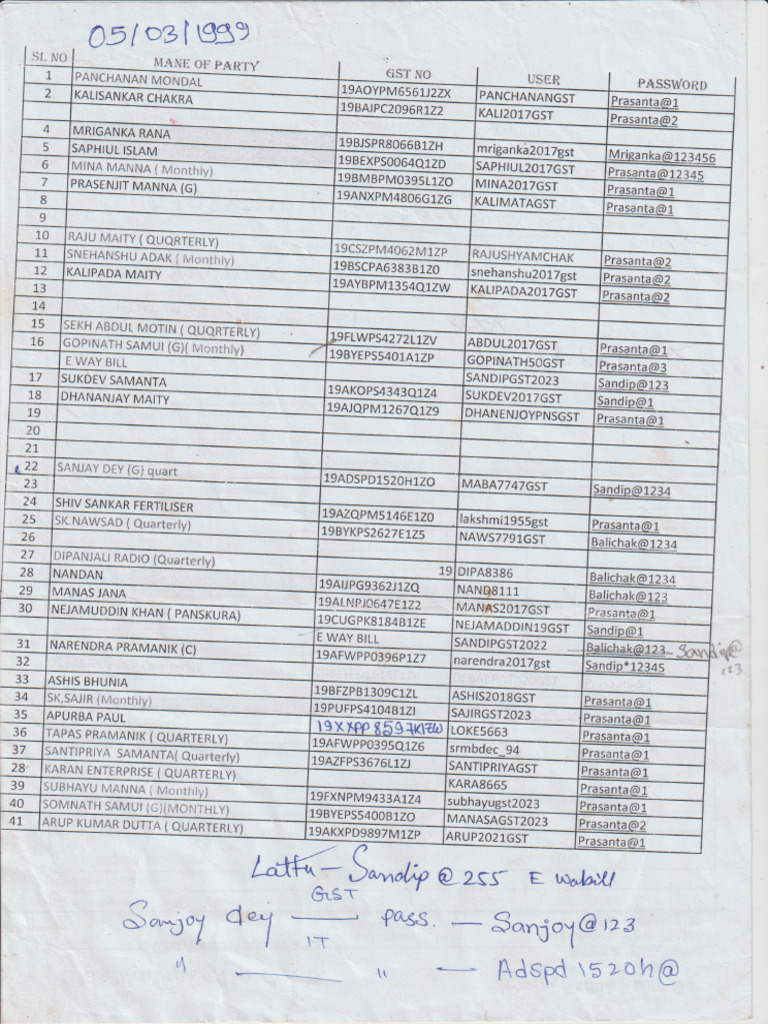 05/03/1999
SL NO MANE OF PARTY GST NO USER PASSWORD
1 PANCHANAN MONDAL 19AOYPM6561J2ZX PANCHANANGST Prasanta@1
2 KALISANKAR CHAKRA 19BAIPC2096R1Z2 KALI2017GST Prasanta@2
4 MRIGANKA RANA 19BJSPR8066B1ZH mriganka2017gst Mriganka@123456
5 SAPHIUL ISLAM 19BEXPS0064Q1ZD SAPHIUL2017GST Prasanta@12345
6 MINA MANNA ( Monthly) 19BMBPM0395L1ZO MINA2017GST Prasanta@1
7 PRASENJIT MANNA (G) 19ANXPM4806G1ZG KALIMATAGST Prasanta@1
8
9
10 RAJU MAITY ( QUQRTERLY) 19CSZPM4062M1ZP RAJUSHYAMCHAK Prasanta@2
11 SNEHANSHU ADAK ( Monthly) 19BSCPA6383B1Z0 snehanshu2017gst Prasanta@2
12 KALIPADA MAITY 19AYBPM1354Q1ZW KALIPADA2017GST Prasanta@2
13
14
15 SEKH ABDUL MOTIN ( QUQRTERLY) 19FLWPS4272L1ZV ABDUL2017GST Prasanta@1
16 GOPINATH SAMUI (G)( Monthly) 19BYEPS5401A1ZP GOPINATH50GST Prasanta@3
E WAY BILL SANDIPGST2023 Sandip@123
17 SUKDEV SAMANTA 19AKOPS4343Q1Z4 SUKDEV2017GST Sandip@1
18 DHANANJAY MAITY 19AJQPM1267Q1Z9 DHANENJOYPNSGST Prasanta@1
19
20
21
22 SANJAY DEY (G) quart 19ADSPD1520H1ZO MABA7747GST Sandip@1234
23
24 SHIV SANKAR FERTILISER 19AZQPM5146E1Z0 lakshmi1955gst Prasanta@1
25 SK.NAWSAD ( Quarterly) 19BYKPS2627E1Z5 NAWS7791GST Balichak@1234
26
27 DIPANJALI RADIO (Quarterly) 19 DIPA8386 Balichak@1234
28 NANDAN 19AIJPG9362J1ZQ NAND8111 Balichak@123
29 MANAS JANA 19ALNPJ0647E1Z2 MANAS2017GST Prasanta@1
30 NEJAMUDDIN KHAN ( PANSKURA) 19CUGPK8184B1ZE NEJAMADDIN19GST Sandip@1
E WAY BILL SANDIPGST2022 Balichak@123 Sandip@123
31 NARENDRA PRAMANIK (C) 19AFWPP0396P1Z7 narendra2017gst Sandip*12345
32
33 ASHIS BHUNIA 19BFZPB1309C1ZL ASHIS2018GST Prasanta@1
34 SK,SAJIR (Monthly) 19PUFPS4104B1ZI SAJIRGST2023 Prasanta@1
35 APURBA PAUL 19XXPP8597K1ZW LOKE5663 Prasanta@1
36 TAPAS PRAMANIK ( QUARTERLY) 19AFWPP0395Q1Z6 srmbdec_94 Prasanta@1
37 SANTIPRIYA SAMANTA( Quarterly) 19AZFPS3676L1ZJ SANTIPRIYAGST Prasanta@1
28 KARAN ENTERPRISE ( QUARTERLY) KARA8665 Prasanta@1
39 SUBHAYU MANNA ( Monthly) 19FXNPM9433A1Z4 subhayugst2023 Prasanta@1
40 SOMNATH SAMUI (G)(MONTHLY) 19BYEPS5400B1ZO MANASAGST2023 Prasanta@2
41 ARUP KUMAR DUTTA ( QUARTERLY) 19AKXPD9897M1ZP ARUP2021GST Prasanta@1
Lattu - Sandip@255 E Wabill
GST
Sanjoy dey — pass. — Sanjoy@123
IT
" — " — Adspd1520h@